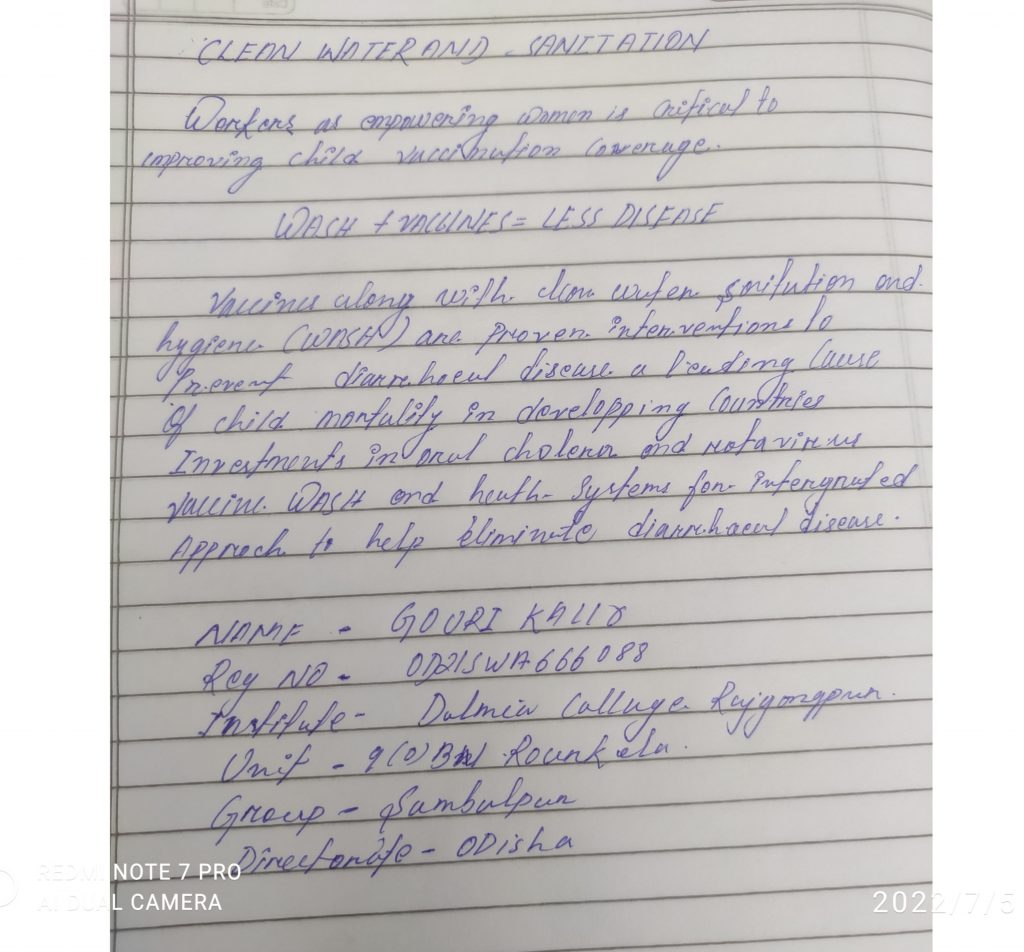 CLEAN WATER AND - SANITATION
Workers as empowering women is critical to
improving child vaccination coverage.
WASH + VACCINES = LESS DISEASE
Vaccines along with clean water sanitation and
hygiene (WASH) are proven interventions to
Prevent diarrhoeal disease a leading Cause
Of child mortality in developping Countries
Investments in oral cholera and rotavirus
vaccine WASH and heath systems for intergrated
Approach to help Eliminate diarrhaeal disease.
NAME - GOURI
Reg NO - OD21SWA666088
Institute - Dalmia College Rajgangpur.
Unit - 9(O)BN Rourkela.
Group - Sambalpur
Directorate - ODisha
REDMI NOTE 7 PRO
AI DUAL CAMERA
2022/7/5